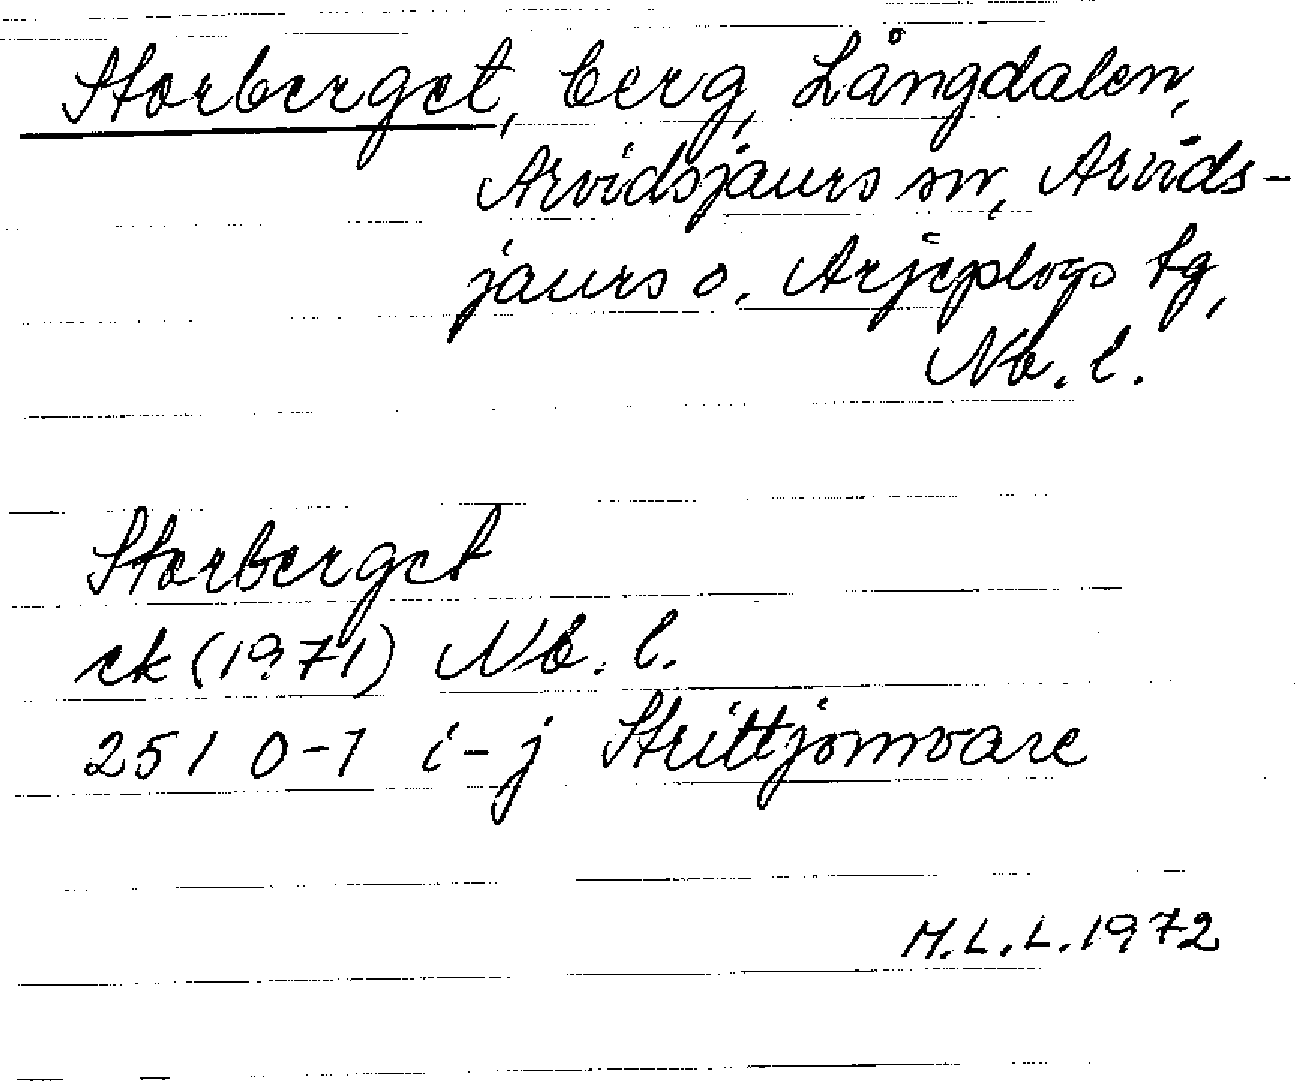 Storberget, berg, Långdalen,
Arvidsjaurs sn, Arvids-
jaurs o. Arjeplogs tg,
Nb. l.
Storberget
ek (1971) Nb. l.
251 0-1 i-j Strittjomvare
M.L.L. 1972